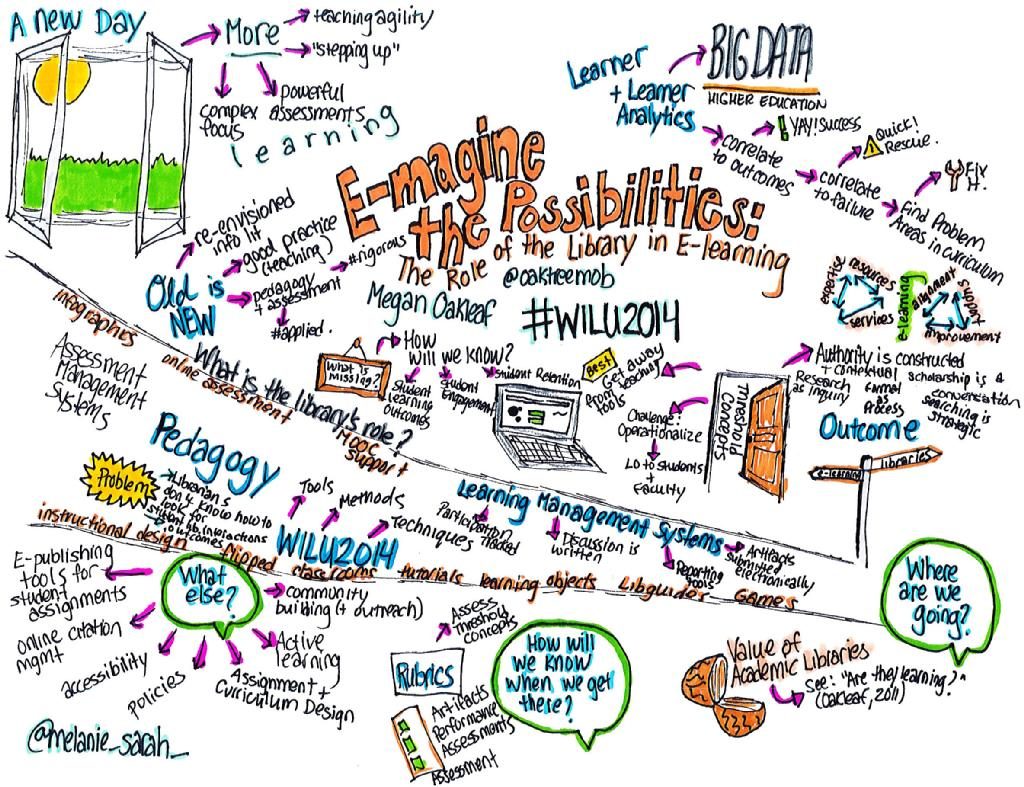 A New Day
More
teaching agility
"stepping up"
complex
focus
powerful
assessments
learning
Learner
+ Learner
Analytics
BIG DATA
HIGHER EDUCATION
correlate
to outcomes
YAY! Success
correlate
to failure
Quick!
Rescue.
find Problem
Areas in curriculum
Fix
it.
E-magine
the Possibilities:
The Role of the Library in E-learning
@oakleemob
Megan Oakleaf
#WILU2014
Old is
NEW
re-envisioned
info lit
good practice
(teaching)
pedagogy
+ assessment
#rigorous
#applied.
expertise
resources
services
e-learning
alignment
support
improvement
infographics
Assessment
Management
Systems
online assessment
What is the library's role?
MOOC
Support
What is
missing?
How
will we know?
student
learning
outcomes
student
Engagement
Student Retention
Best!
Get away
from teaching
tools
Challenge:
Operationalize
LO to students
+
Faculty
Threshold
Concepts
Authority is constructed
+ contextual
Research
as inquiry
format
as
Process
scholarship is a
conversation
searching is
strategic
Outcome
e-learning
Libraries
Pedagogy
Problem
*Librarians
don't know how to
look for
student lib interactions
to outcomes
Tools
Methods
Techniques
WILU2014
Learning Management Systems
Participation
tracked
Discussion is
written
Reporting
tools
Artifacts
submitted
electronically
instructional design
flipped classrooms
tutorials
learning objects
Libguides
Games
What
else?
E-publishing
tools for
student
assignments
online citation
mgmt
accessibility
policies
Assignment +
Curriculum Design
Active
learning
community
building (+ outreach)
Rubrics
Assess
threshold
concepts
Artifacts
Performance
Assessments
Assessment
How will
we know
when we get
there?
Value of
Academic Libraries
see: "Are they learning?"
(Oakleaf, 2011)
Where
are we
going?
@melanie_sarah_